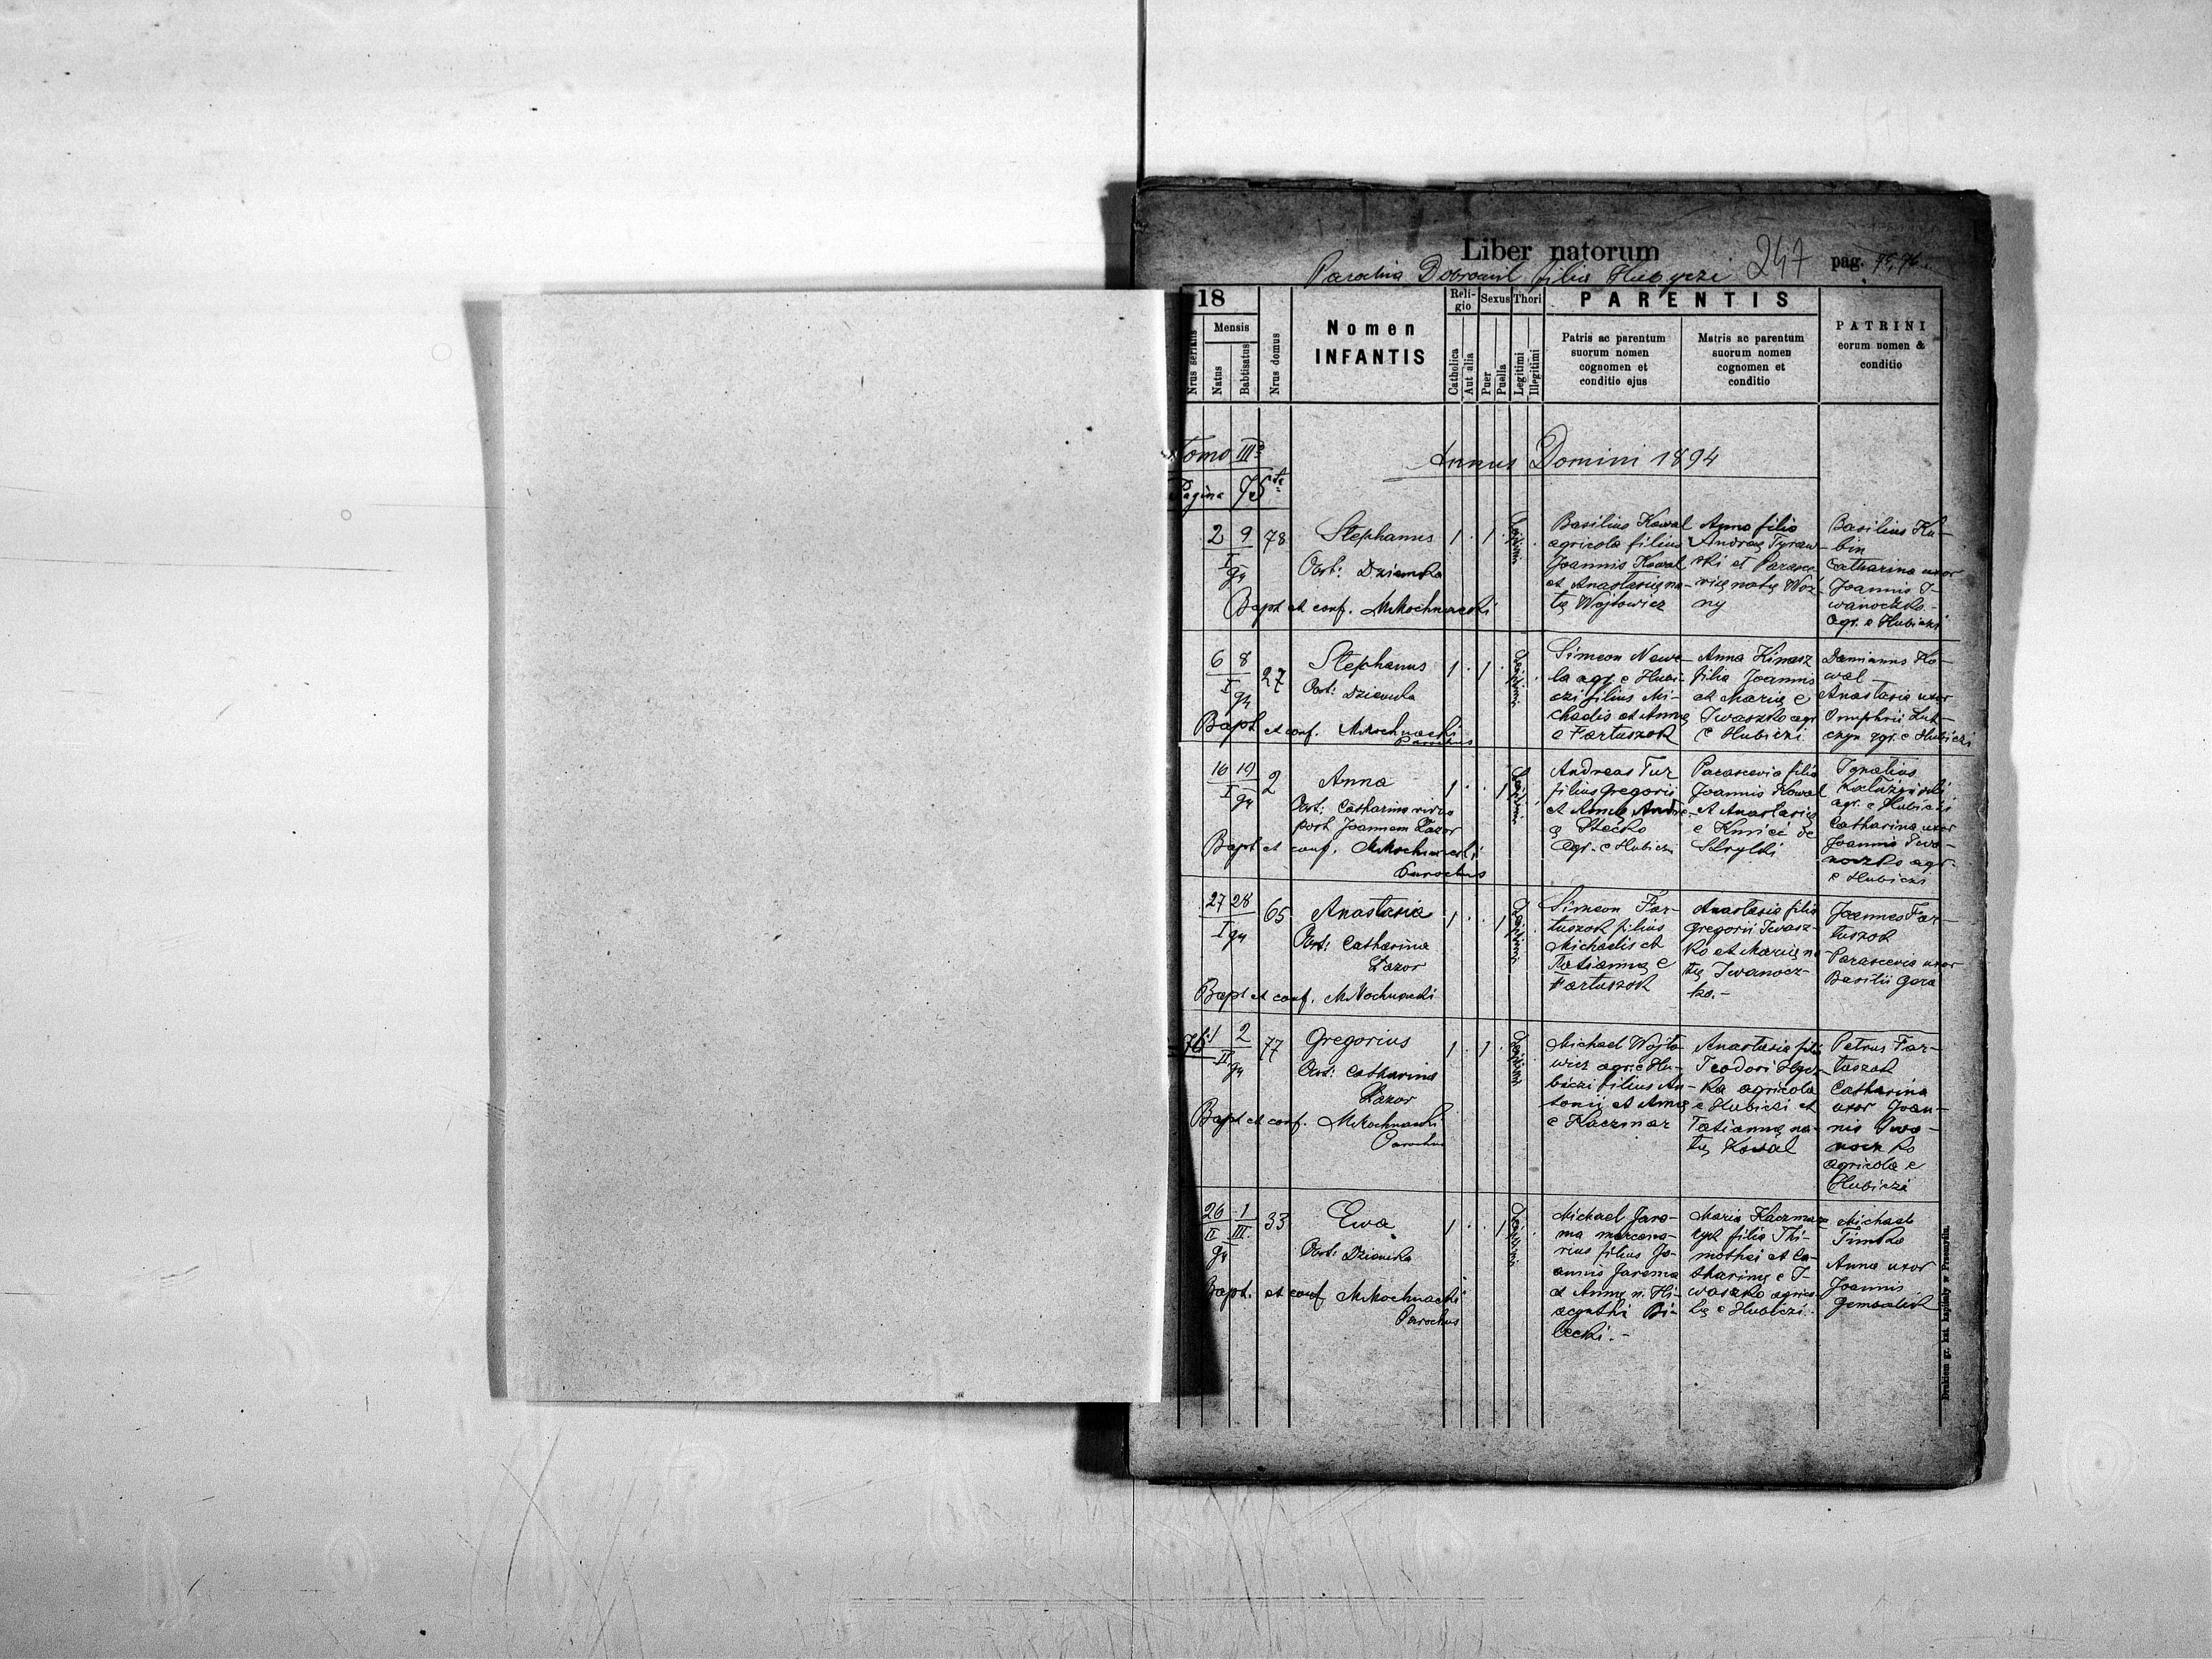 Liber natorum
247
pag. 75, 76
Parochia Dobromil filia Hubyczi
18
Nrus serialis
Mensis
Natus
Babtisatus
Nrus domus
Nomen
INFANTIS
Reli-
gio
Catholica
Aut alia
Sexus
Puer
Puella
Thori
Legitimi
Illegitimi
PARENTIS
Patris ac parentum
suorum nomen
cognomen et
conditio ejus
Matris ac parentum
suorum nomen
cognomen et
conditio
PATRINI
eorum nomen &
conditio
Tomo III
Annus Domini 1894
Pagina 75
2 9
I
94
78
Stephanus
Obst: Dziamba
Bapt et conf. M Mochnacki
1 . 1 .
Legitimi
Basilius Kowal
agricola filius
Joannis Kowal
et Anastasię na-
tę Wojtowicz
Anna filia
Andreę Tyraw-
ski et Parasce-
vię natę Woz-
ny
Basilius Ku-
bin
Catharina uxor
Joannis I-
wanoczko -
agr. e Hubiczi
6 8
I
94
27
Stephanus
Obst: Dziamba
Bapt et conf. M Mochnacki
Parochus
1 . 1 .
Legitimi
Simeon Nawa-
la agr. e Hubi-
czi filius Mi-
chaelis et Annę
e Fartuszok
Anna Kinasz
filia Joannis
et Marię e
Iwaszko agr
e Hubiczi
Damianus Ko-
wal
Anastasia uxor
Onuphrii Lut-
czyn agr. e Hubiczi
16 19
I
94
2
Anna
Obst: Catharina vidua
post Joannem Lazor
Bapt et conf. M Mochnacki
Parochus
1 . . 1
Legitimi
Andreas Tur
filius Gregorii
et Annę Andre-
ę Stećko
agr. e Hubiczi
Parascevia filia
Joannis Kowal
et Anastasię
e Kunieć de
Strylki
Ignatius
Kaluzinski
agr. e Hubiczi
Catharina uxor
Joannis Iwa-
noczko agr.
e Hubiczi
27 28
I
94
65
Anastasia
Obst: Catharina
Lazor
Bapt et conf. M Mochnacki
1 . . 1
Legitimi
Simeon Far-
tuszok filius
Michaelis et
Tatiannę e
Fartuszok
Anastasia filia
Gregorii Iwasz-
ko et Marię na-
tę Iwanocz-
ko. -
Joannes Far-
tuszok
Parascevia uxor
Basilii Gara
76
1 2
II
94
77
Gregorius
Obst: Catharina
Lazor
Bapt et conf. M Mochnacki
Parochus
1 . 1 .
Legitimi
Michael Wojto-
wicz agr. e Hu-
biczi filius An-
tonii et Annę
e Kaczmar
Anastasia filia
Teodori
ka agricola
e Hubiczi et
Tatiannę na-
tę Kowal
Petrus Far-
tuszok
Catharina
uxor Joan-
nis Iwa-
noczko
agricola e
Hubiczi
26 1
II III
94
33
Ewa
Obst: Dziamba
Bapt. et conf M Mochnacki
Parochus
1 . . 1
Legitimi
Michael Jare-
ma mercena-
rius filius Jo-
annis Jarema
et Annę n. Hi-
acynthi Bi-
lecki. -
Maria Kaczma-
ryk filia Thi-
mothei et Ca-
tharinę e I-
waszko agrico-
lę e Hubiczi
Michael
Timko
Anna uxor
Joannis
Drukiem gr. kat. kapituły w Przemyślu.